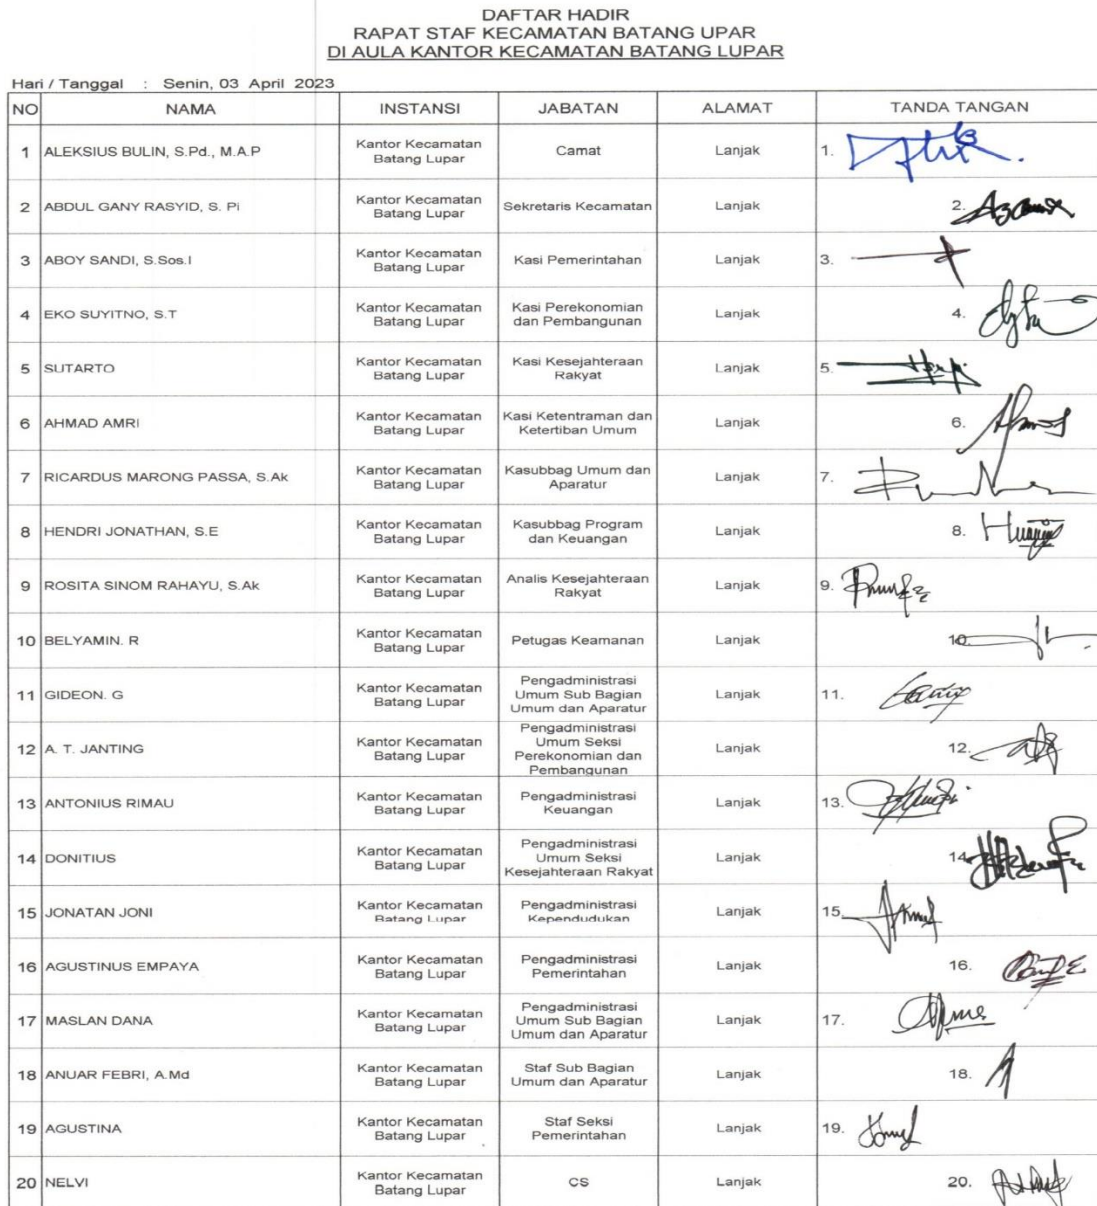 DAFTAR HADIR
RAPAT STAF KECAMATAN BATANG UPAR
DI AULA KANTOR KECAMATAN BATANG LUPAR
Hari / Tanggal : Senin, 03 April 2023
NO NAMA INSTANSI JABATAN ALAMAT TANDA TANGAN
1 ALEKSIUS BULIN, S.Pd., M.A.P Kantor Kecamatan Batang Lupar Camat Lanjak 1.
2 ABDUL GANY RASYID, S. Pi Kantor Kecamatan Batang Lupar Sekretaris Kecamatan Lanjak 2.
3 ABOY SANDI, S.Sos.I Kantor Kecamatan Batang Lupar Kasi Pemerintahan Lanjak 3.
4 EKO SUYITNO, S.T Kantor Kecamatan Batang Lupar Kasi Perekonomian dan Pembangunan Lanjak 4.
5 SUTARTO Kantor Kecamatan Batang Lupar Kasi Kesejahteraan Rakyat Lanjak 5.
6 AHMAD AMRI Kantor Kecamatan Batang Lupar Kasi Ketentraman dan Ketertiban Umum Lanjak 6.
7 RICARDUS MARONG PASSA, S.Ak Kantor Kecamatan Batang Lupar Kasubbag Umum dan Aparatur Lanjak 7.
8 HENDRI JONATHAN, S.E Kantor Kecamatan Batang Lupar Kasubbag Program dan Keuangan Lanjak 8.
9 ROSITA SINOM RAHAYU, S.Ak Kantor Kecamatan Batang Lupar Analis Kesejahteraan Rakyat Lanjak 9.
10 BELYAMIN. R Kantor Kecamatan Batang Lupar Petugas Keamanan Lanjak 10.
11 GIDEON. G Kantor Kecamatan Batang Lupar Pengadministrasi Umum Sub Bagian Umum dan Aparatur Lanjak 11.
12 A. T. JANTING Kantor Kecamatan Batang Lupar Pengadministrasi Umum Seksi Perekonomian dan Pembangunan Lanjak 12.
13 ANTONIUS RIMAU Kantor Kecamatan Batang Lupar Pengadministrasi Keuangan Lanjak 13.
14 DONITIUS Kantor Kecamatan Batang Lupar Pengadministrasi Umum Seksi Kesejahteraan Rakyat Lanjak 14.
15 JONATAN JONI Kantor Kecamatan Batang Lupar Pengadministrasi Kependudukan Lanjak 15.
16 AGUSTINUS EMPAYA Kantor Kecamatan Batang Lupar Pengadministrasi Pemerintahan Lanjak 16.
17 MASLAN DANA Kantor Kecamatan Batang Lupar Pengadministrasi Umum Sub Bagian Umum dan Aparatur Lanjak 17.
18 ANUAR FEBRI, A.Md Kantor Kecamatan Batang Lupar Staf Sub Bagian Umum dan Aparatur Lanjak 18.
19 AGUSTINA Kantor Kecamatan Batang Lupar Staf Seksi Pemerintahan Lanjak 19.
20 NELVI Kantor Kecamatan Batang Lupar CS Lanjak 20.